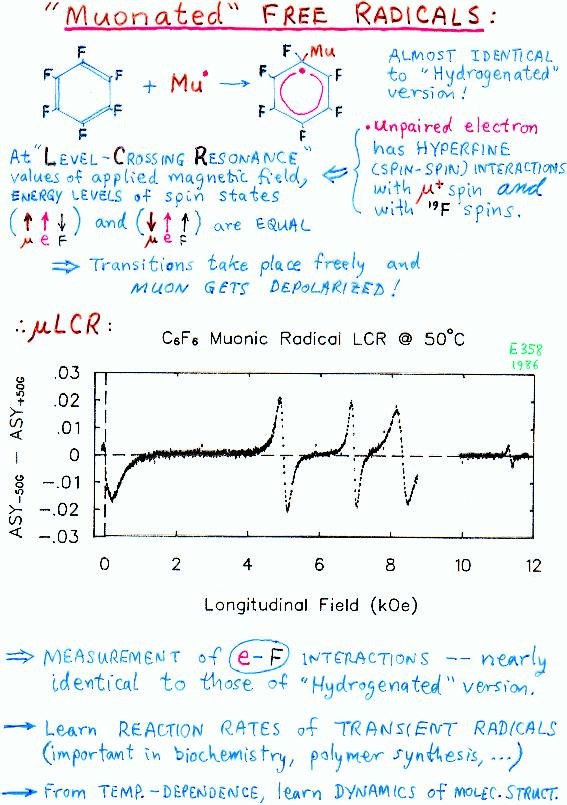 "Muonated" FREE RADICALS:
F F F F F F + Mu• → F Mu F F F F F
ALMOST IDENTICAL
to "Hydrogenated"
version!
• Unpaired electron
has HYPERFINE
(SPIN-SPIN) INTERACTIONS
with μ+ spin and
with ¹⁹F spins.
At "LEVEL-CROSSING RESONANCE"
values of applied magnetic field,
ENERGY LEVELS of spin states
(↑↑↓) and (↓↑↑) are EQUAL
μ e F μ e F
⇒ Transitions take place freely and
MUON GETS DEPOLARIZED!
∴ μLCR:
C6F6 Muonic Radical LCR @ 50°C
E358
1986
ASY-50G − ASY+50G
.03
.02
.01
0
−.01
−.02
−.03
0 2 4 6 8 10 12
Longitudinal Field (kOe)
⇒ MEASUREMENT of e-F INTERACTIONS -- nearly
identical to those of "Hydrogenated" version.
→ Learn REACTION RATES of TRANSIENT RADICALS
(important in biochemistry, polymer synthesis, ...)
→ From TEMP.-DEPENDENCE, learn DYNAMICS of MOLEC. STRUCT.